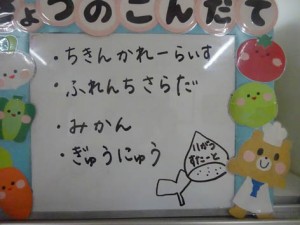 きょうのこんだて
・ちきんかれーらいす
・ふれんちさらだ
・みかん
・ぎゅうにゅう
11がつ
すたーと